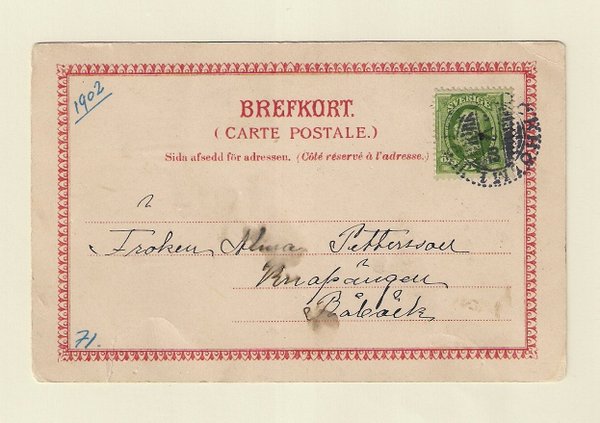 1902
BREFKORT.
(CARTE POSTALE.)
Sida afsedd för adressen. (Côté réservé à l'adresse.)
SVERIGE
Fröken Alma Pettersson
Knapängen
Båbäck
71.